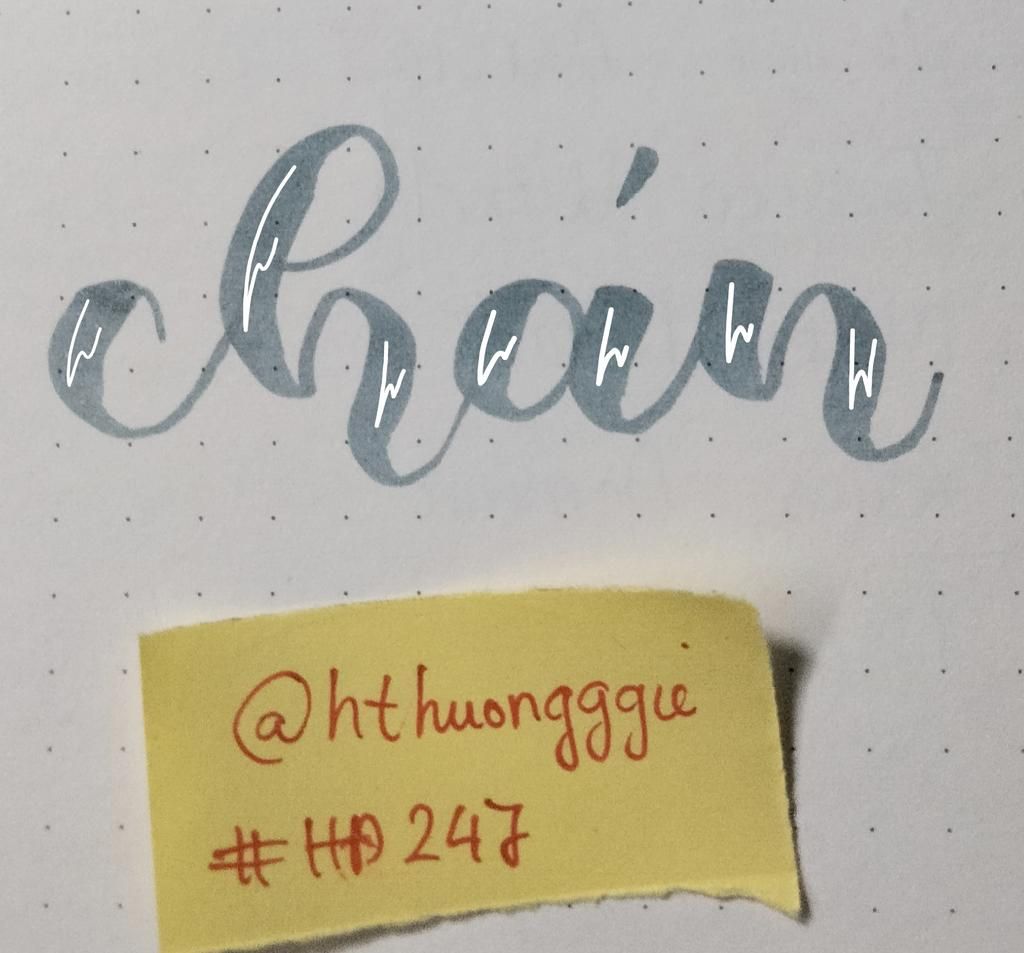 chán
@hthuongggie
#HD247